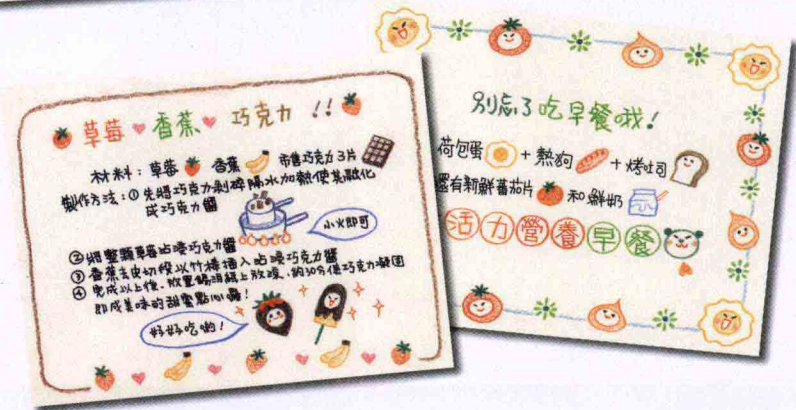 草莓♥香蕉♥巧克力!!
材料:草莓 香蕉 市售巧克力3片
製作方法:①先將巧克力剝碎隔水加熱使其融化
成巧克力醬
小火即可
②將整顆草莓沾湊巧克力醬
③香蕉去皮切段以竹棒插入沾湊巧克力醬
④完成以上後、放置錫泊紙上放涼、約30分僅巧克力凝固
即成美味的甜蜜點心囉!
好好吃喲!
別忘了吃早餐哦!
荷包蛋 + 熱狗 + 烤吐司
還有新鮮蕃茄片 和 鮮奶
活力營養早餐